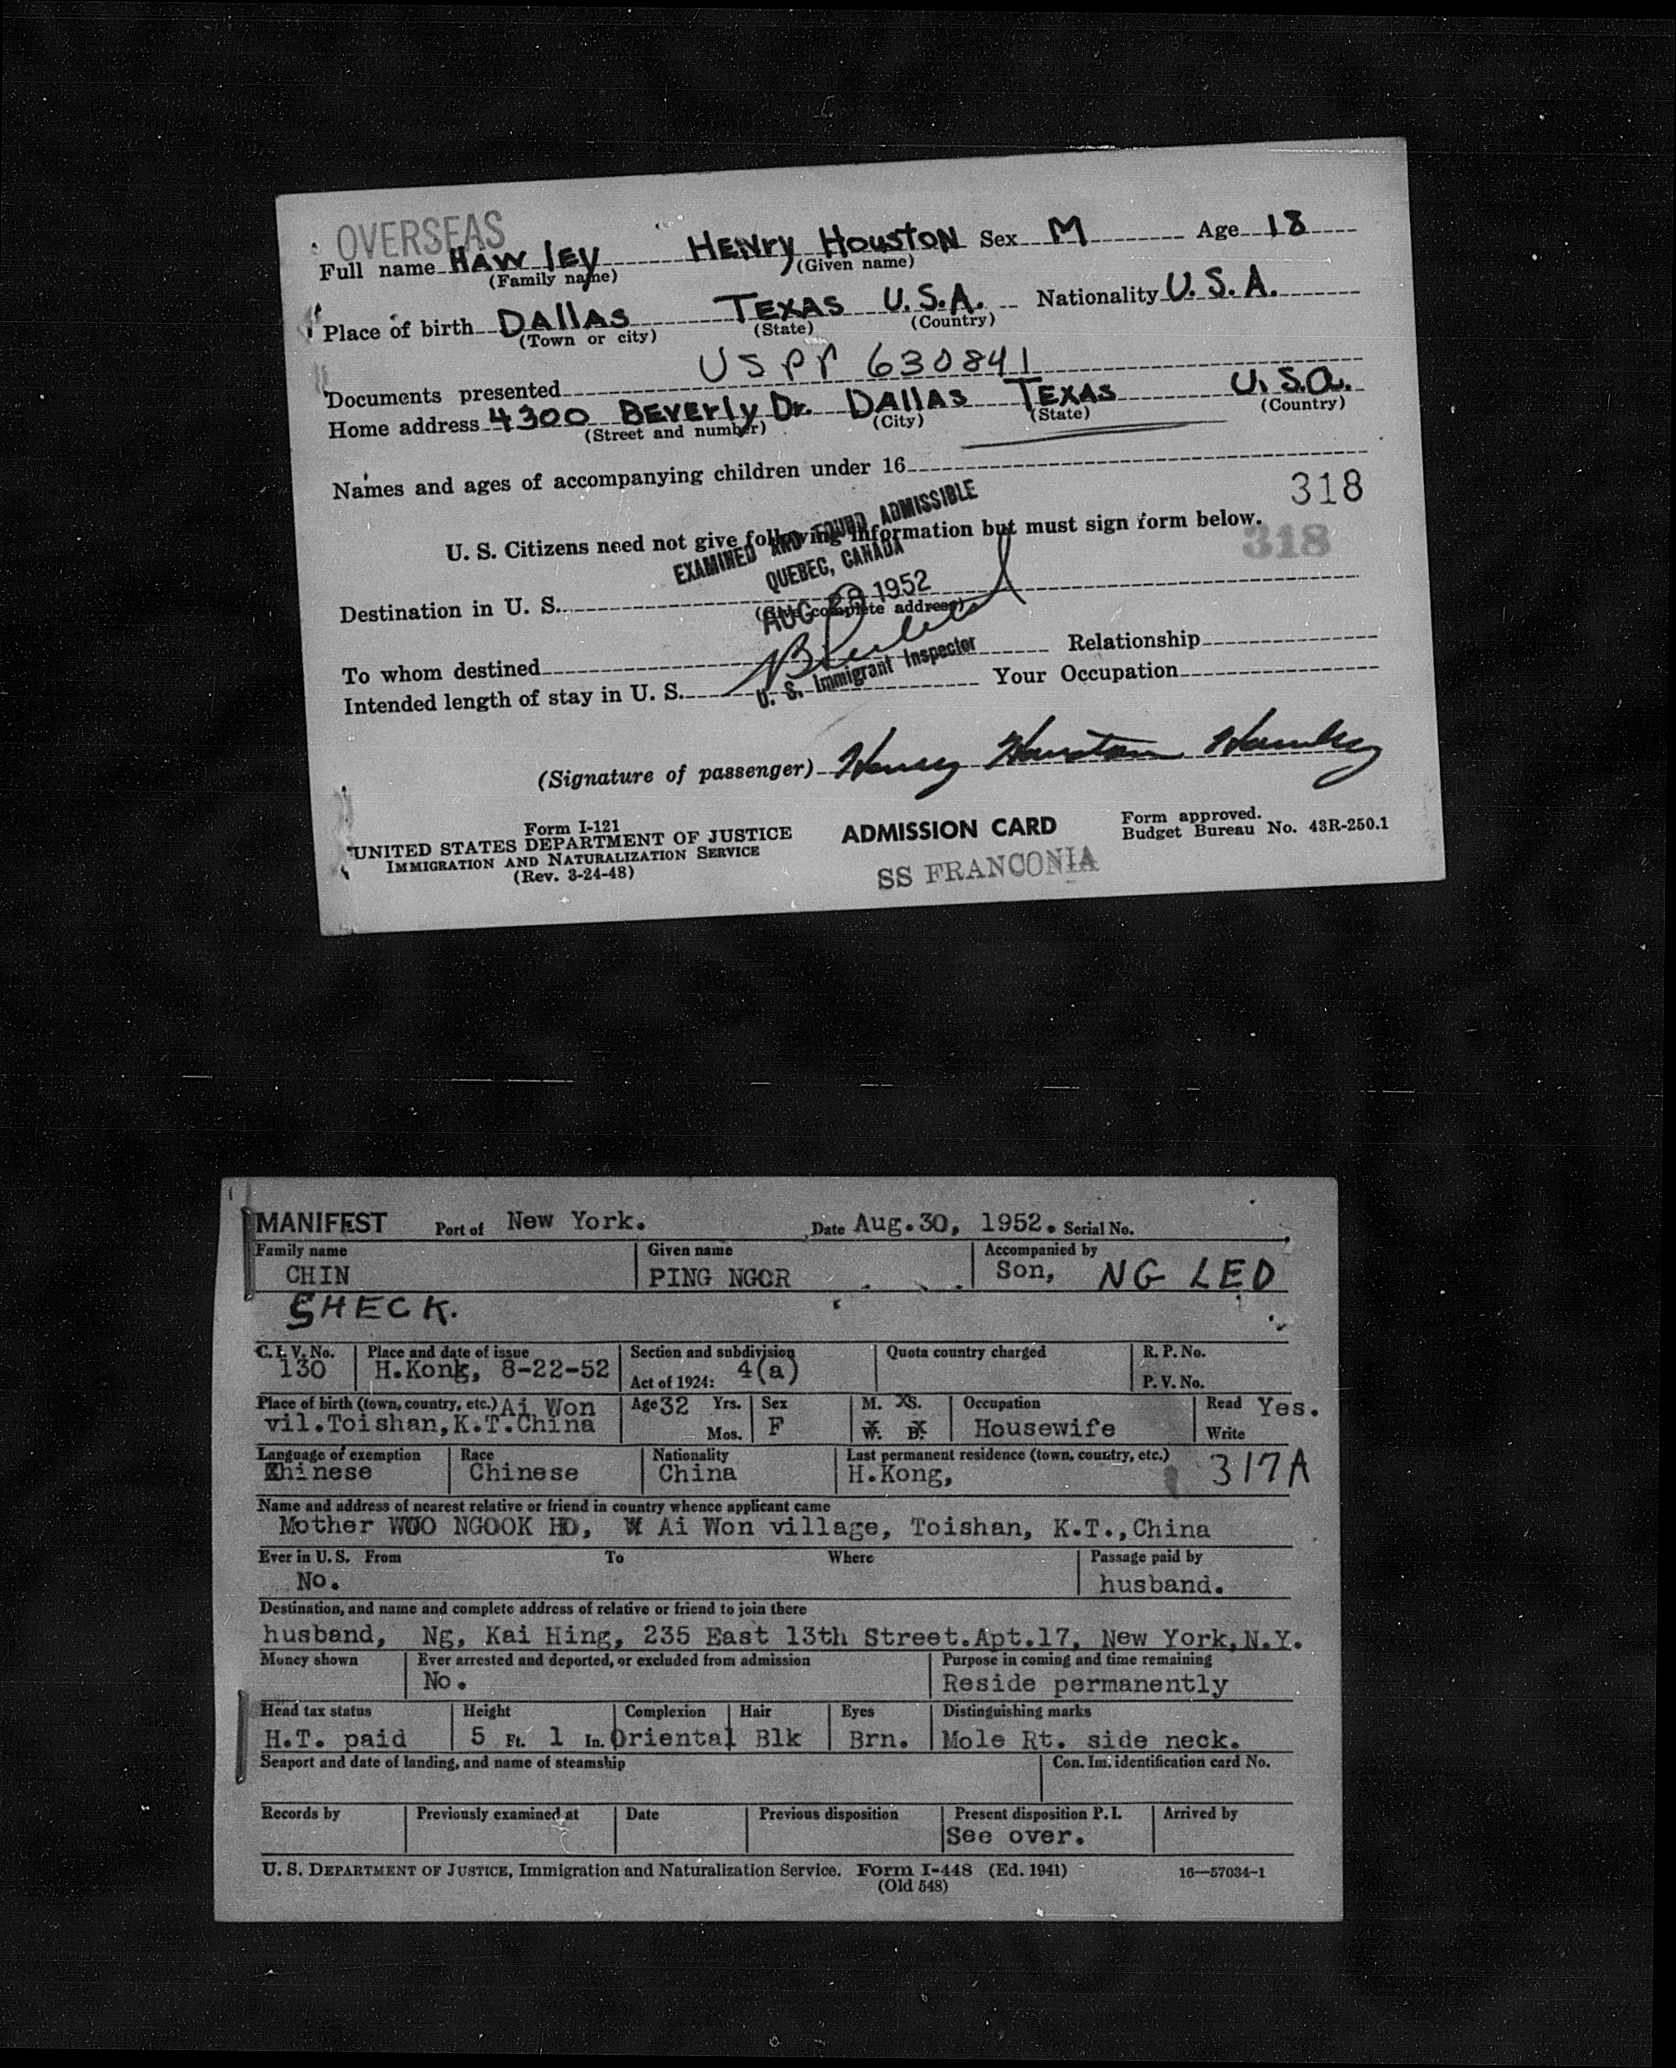 OVERSEAS
Full name HAWlEy HENRy HOUSTON Sex M Age 18
(Family name) (Given name)
Place of birth DAllAS TEXAS U.S.A. Nationality U.S.A.
(Town or city) (State) (Country)
Documents presented USPP 630841
Home address 4300 BEVERly Dr. DAllAS TEXAS U.S.A.
(Street and number) (City) (State) (Country)
Names and ages of accompanying children under 16
318
U. S. Citizens need not give following information but must sign form below.
318
EXAMINED AND FOUND ADMISSIBLE
QUEBEC, CANADA
AUG 29 1952
Destination in U. S.
(Give complete address)
To whom destined Relationship
U. S. Immigrant Inspector
Intended length of stay in U. S. Your Occupation
(Signature of passenger) Henry Houston Hawley
Form I-121
UNITED STATES DEPARTMENT OF JUSTICE
IMMIGRATION AND NATURALIZATION SERVICE
(Rev. 3-24-48)
ADMISSION CARD
Form approved.
Budget Bureau No. 43R-250.1
SS FRANCONIA
MANIFEST Port of New York. Date Aug.30, 1952. Serial No.
Family name Given name Accompanied by
CHIN PING NGOR Son, NG LED
SHECK.
C. I. V. No. Place and date of issue Section and subdivision Quota country charged R. P. No.
130 H.Kong, 8-22-52 Act of 1924: 4(a) P. V. No.
Place of birth (town, country, etc.) Ai Won Age 32 Yrs. Sex M. S. Occupation Read Yes.
vil.Toishan,K.T.China Mos. F W. D. Housewife Write
Language of exemption Race Nationality Last permanent residence (town, country, etc.)
Chinese Chinese China H.Kong, 317A
Name and address of nearest relative or friend in country whence applicant came
Mother WUO NGOOK HO, Ai Won village, Toishan, K.T.,China
Ever in U. S. From To Where Passage paid by
No. husband.
Destination, and name and complete address of relative or friend to join there
husband, Ng, Kai Hing, 235 East 13th Street.Apt.17, New York,N.Y.
Money shown Ever arrested and deported, or excluded from admission Purpose in coming and time remaining
No. Reside permanently
Head tax status Height Complexion Hair Eyes Distinguishing marks
H.T. paid 5 Ft. 1 In. Oriental Blk Brn. Mole Rt. side neck.
Seaport and date of landing, and name of steamship Con. Im. identification card No.
Records by Previously examined at Date Previous disposition Present disposition P. I. Arrived by
See over.
U. S. DEPARTMENT OF JUSTICE, Immigration and Naturalization Service. Form I-448 (Ed. 1941) 16—57034-1
(Old 548)